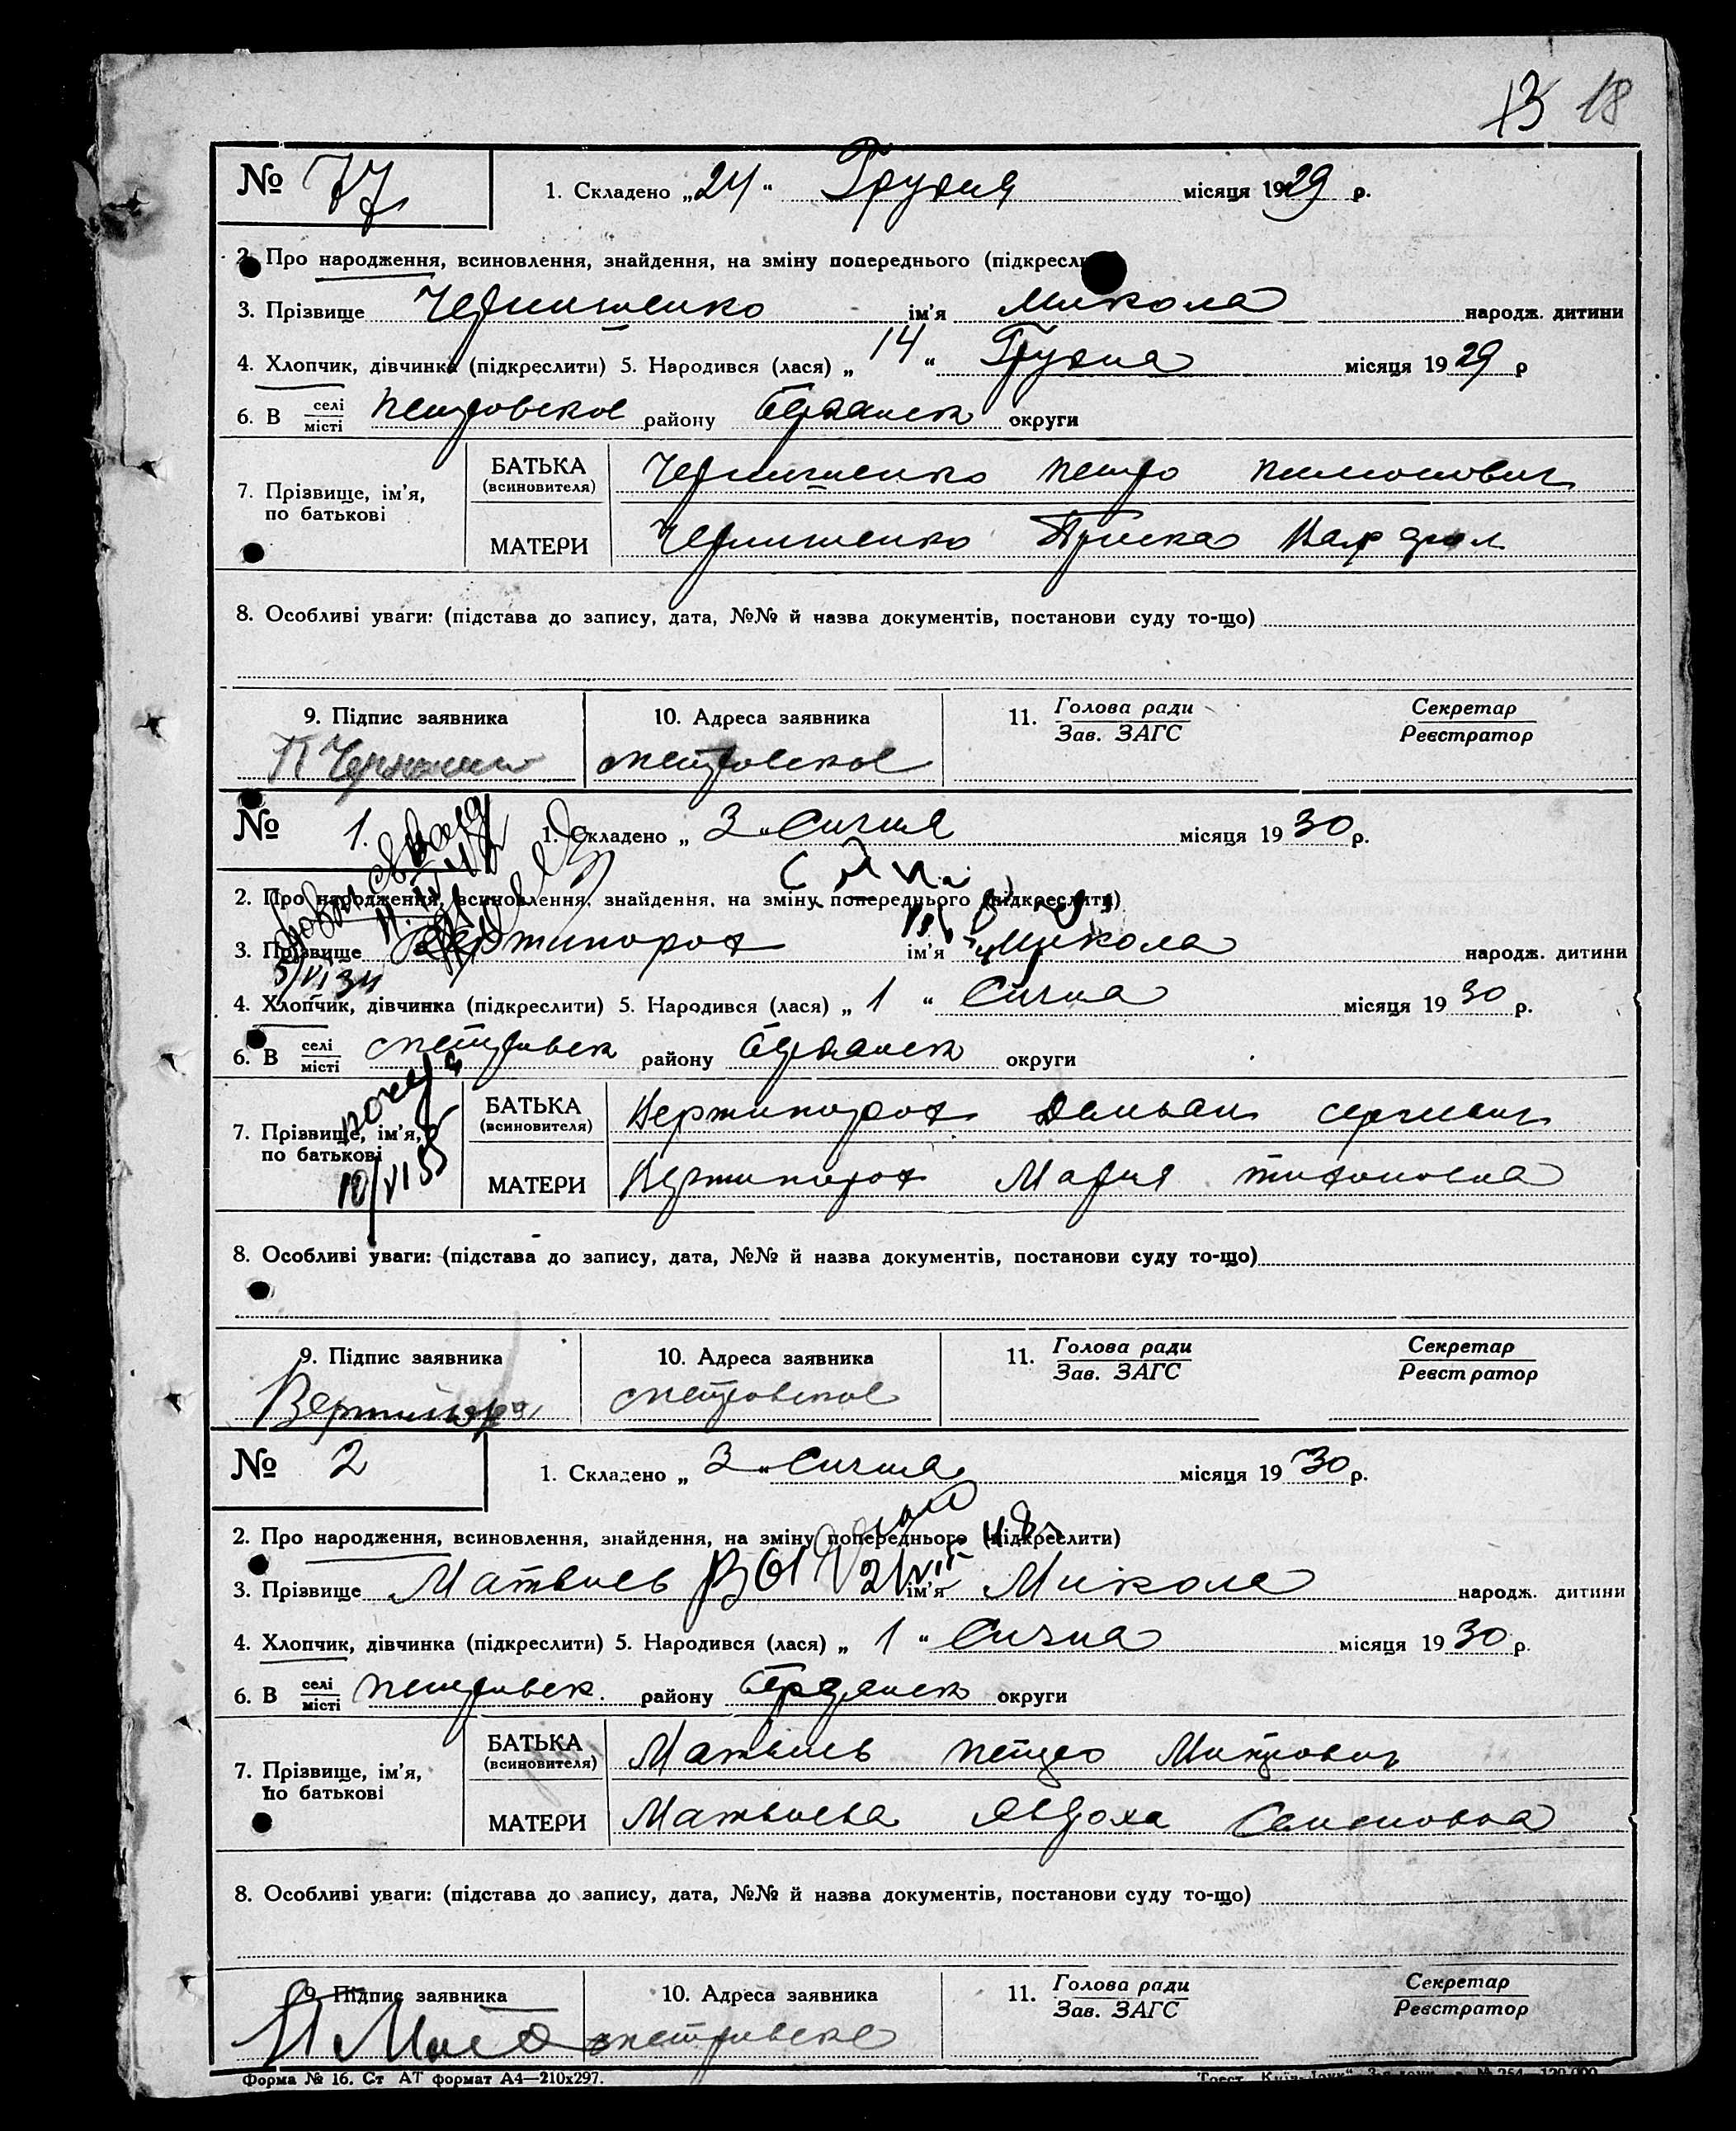 13 18
№ 77 1. Складено „24“ Грудня місяця 1929 р.
2. Про народження, всиновлення, знайдення, на зміну попереднього (підкресл
3. Прізвище Чернишенко ім'я Микола народж. дитини
4. Хлопчик, дівчинка (підкреслити) 5. Народився (лася) „14“ Грудня місяця 1929 р
6. В селі місті Петровское району Бердянск округи
7. Прізвище, ім'я, по батькові
БАТЬКА (всиновителя) Чернишенко Петро
МАТЕРИ Чернишенко Пріська
8. Особливі уваги: (підстава до запису, дата, №№ й назва документів, постанови суду то-що)
9. Підпис заявника 10. Адреса заявника 11. Голова ради Зав. ЗАГС Секретар Реєстратор
П Черниш Петровское
№ 1. 1. Складено „3“ Сичня місяця 1930 р.
2. Про народження, всиновлення, знайдення, на зміну попереднього (підкреслити)
3. Прізвище Вертипорох ім'я Микола народж. дитини
5/VI 34
4. Хлопчик, дівчинка (підкреслити) 5. Народився (лася) „1“ Сичня місяця 1930 р.
6. В селі місті Петрівск району Бердянск округи
7. Прізвище, ім'я, по батькові
10/VI 55
БАТЬКА (всиновителя) Вертипорох Демьан Сергиевич
МАТЕРИ Вертипорох Мария Тихоновна
8. Особливі уваги: (підстава до запису, дата, №№ й назва документів, постанови суду то-що)
9. Підпис заявника 10. Адреса заявника 11. Голова ради Зав. ЗАГС Секретар Реєстратор
Вертипорох Петровское
№ 2 1. Складено „3“ Сичня місяця 1930 р.
2. Про народження, всиновлення, знайдення, на зміну попереднього (підкреслити)
3. Прізвище Матвиев ім'я Микола народж. дитини
4. Хлопчик, дівчинка (підкреслити) 5. Народився (лася) „1“ Сичня місяця 1930 р.
6. В селі місті Петривск. району Бердянск округи
7. Прізвище, ім'я, по батькові
БАТЬКА (всиновителя) Матвиев Петро Митрович
МАТЕРИ Матвиева Явдоха Семеновна
8. Особливі уваги: (підстава до запису, дата, №№ й назва документів, постанови суду то-що)
9. Підпис заявника 10. Адреса заявника 11. Голова ради Зав. ЗАГС Секретар Реєстратор
Петривске
Форма № 16. Ст АТ формат А4—210x297.